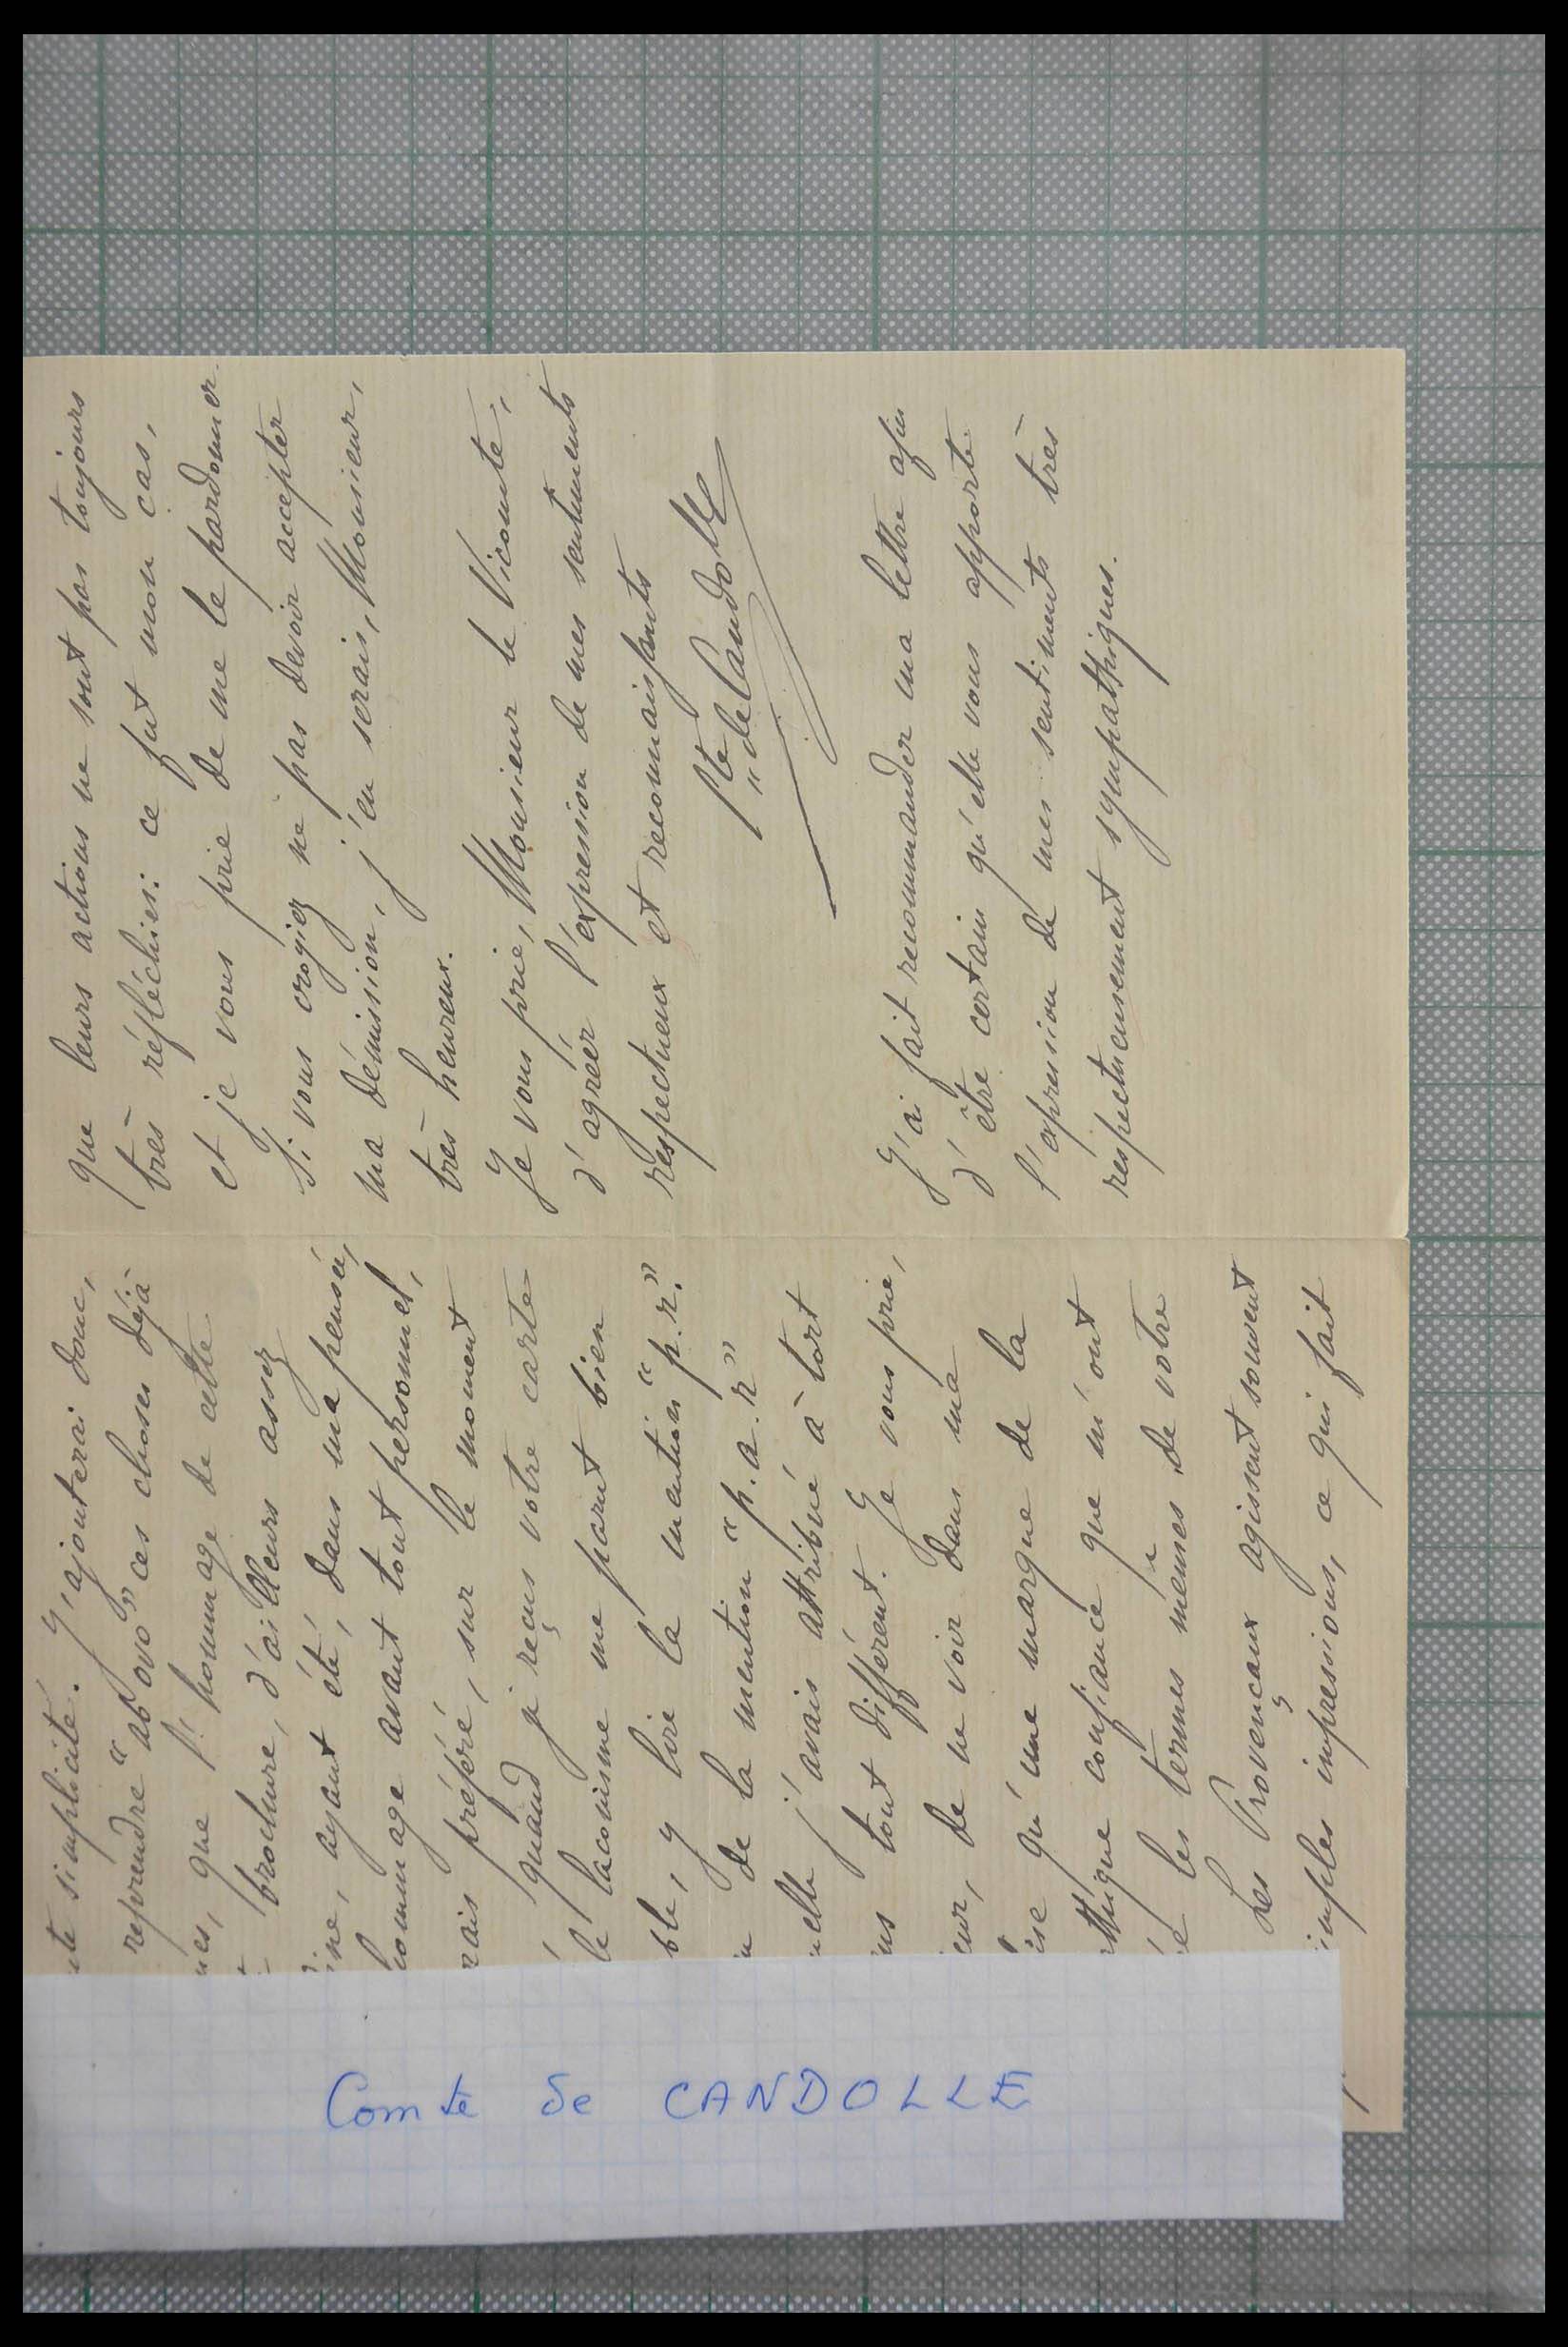 Comte de CANDOLLE
simplicité. J'ajouterai donc,
reprendre "ab ovo" ces choses déjà
que l'hommage de cette
brochure, d'ailleurs assez
ayant été, dans ma pensée,
hommage avant tout personnel,
préféré, sur le moment
quand je reçus votre carte
le laconisme me parut bien
y lire la mention "p.r."
de la mention "p.a.r"
j'avais attribué à tort
tout différent. Je vous prie,
de ne voir dans ma
qu'une marque de la
confiance que m'ont
les termes mêmes de votre
Les Provençaux agissent souvent
simples impressions, ce qui fait
que leurs actions ne sont pas toujours
très réfléchies: ce fut mon cas,
et je vous prie de me le pardonner.
Si vous croyiez ne pas devoir accepter
ma démission, j'en serais, Monsieur,
très heureux.
Je vous prie, Monsieur le Vicomte,
d'agréer l'expression de mes sentiments
respectueux et reconnaissants
Cte de Candolle
J'ai fait recommander ma lettre afin
d'être certain qu'elle vous apporte
l'expression de mes sentiments très
respectueusement sympathiques.